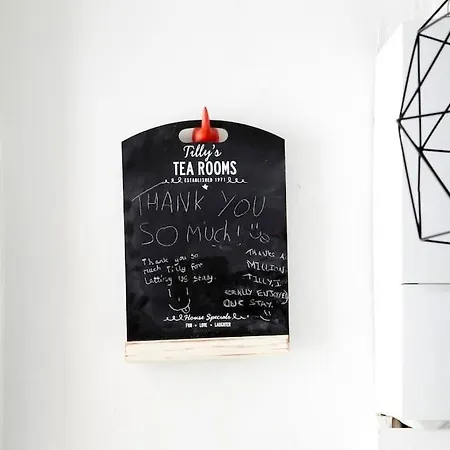 Tilly's
TEA ROOMS
ESTABLISHED 1971
THANK YOU
SO MUCH!
Thank you so
much Tilly for
Letting us stay.
THANKS A
MILLION
TILLY, I
REALLY ENJOYED
OUR STAY.
House Specials
FUN • LOVE • LAUGHTER